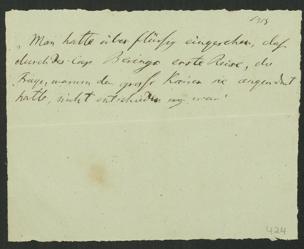 „Man hatte überflüssig eingesehen, daß
durch des Cap. Berings erste Reise, die
Frage, warum der große Kaiser sie angeordnet
hatte, nicht entschieden
424